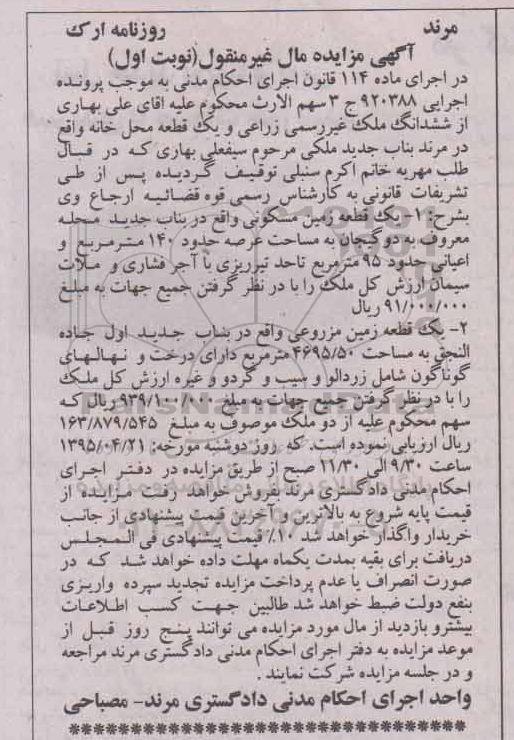 مرند روزنامه ارک
آگهی مزایده مال غیرمنقول(نوبت اول)
در اجرای ماده ۱۱۴ قانون اجرای احکام مدنی به موجب پرونده
اجرایی ۹۲۰۳۸۸ ج ۳ سهم الارث محکوم علیه اقای علی بهاری
از ششدانگ ملک غیررسمی زراعی و یک قطعه محل خانه واقع
در مرند بناب جدید ملکی مرحوم سیفعلی بهاری که در قبال
طلب مهریه خانم اکرم سنبلی توقیف گردیده پس از طی
تشریفات قانونی به کارشناس رسمی قوه قضائیه ارجاع وی
بشرح: ۱- یک قطعه زمین مسکونی واقع در بناب جدید محله
معروف به دوگیجان به مساحت عرصه حدود ۱۴۰ مترمربع و
اعیانی حدود ۹۵ مترمربع تاحد تیرریزی با آجر فشاری و ملات
سیمان ارزش کل ملک را با در نظر گرفتن جمیع جهات به مبلغ
۹۱/۰۰۰/۰۰۰ ریال
۲- یک قطعه زمین مزروعی واقع در بناب جدید اول جاده
النجق به مساحت ۴۶۹۵/۵۰ مترمربع دارای درخت و نهالهای
گوناگون شامل زردالو و سیب و گردو و غیره ارزش کل ملک
را با در نظر گرفتن جمیع جهات به مبلغ ۹۳۹/۱۰۰/۰۰۰ ریال که
سهم محکوم علیه از دو ملک موصوف به مبلغ ۱۶۳/۸۷۹/۵۴۵
ریال ارزیابی نموده است. که روز دوشنبه مورخه: ۱۳۹۵/۰۴/۲۱
ساعت ۹/۳۰ الی ۱۱/۳۰ صبح از طریق مزایده در دفتر اجرای
احکام مدنی دادگستری مرند بفروش خواهد رفت مزایده از
قیمت پایه شروع به بالاترین و آخرین قیمت پیشنهادی از جانب
خریدار واگذار خواهد شد ۱۰٪ قیمت پیشنهادی فی المجلس
دریافت برای بقیه بمدت یکماه مهلت داده خواهد شد که در
صورت انصراف یا عدم پرداخت مزایده تجدید سپرده واریزی
بنفع دولت ضبط خواهد شد طالبین جهت کسب اطلاعات
بیشترو بازدید از مال مورد مزایده می توانند پنج روز قبل از
موعد مزایده به دفتر اجرای احکام مدنی دادگستری مرند مراجعه
و در جلسه مزایده شرکت نمایند .
واحد اجرای احکام مدنی دادگستری مرند- مصباحی